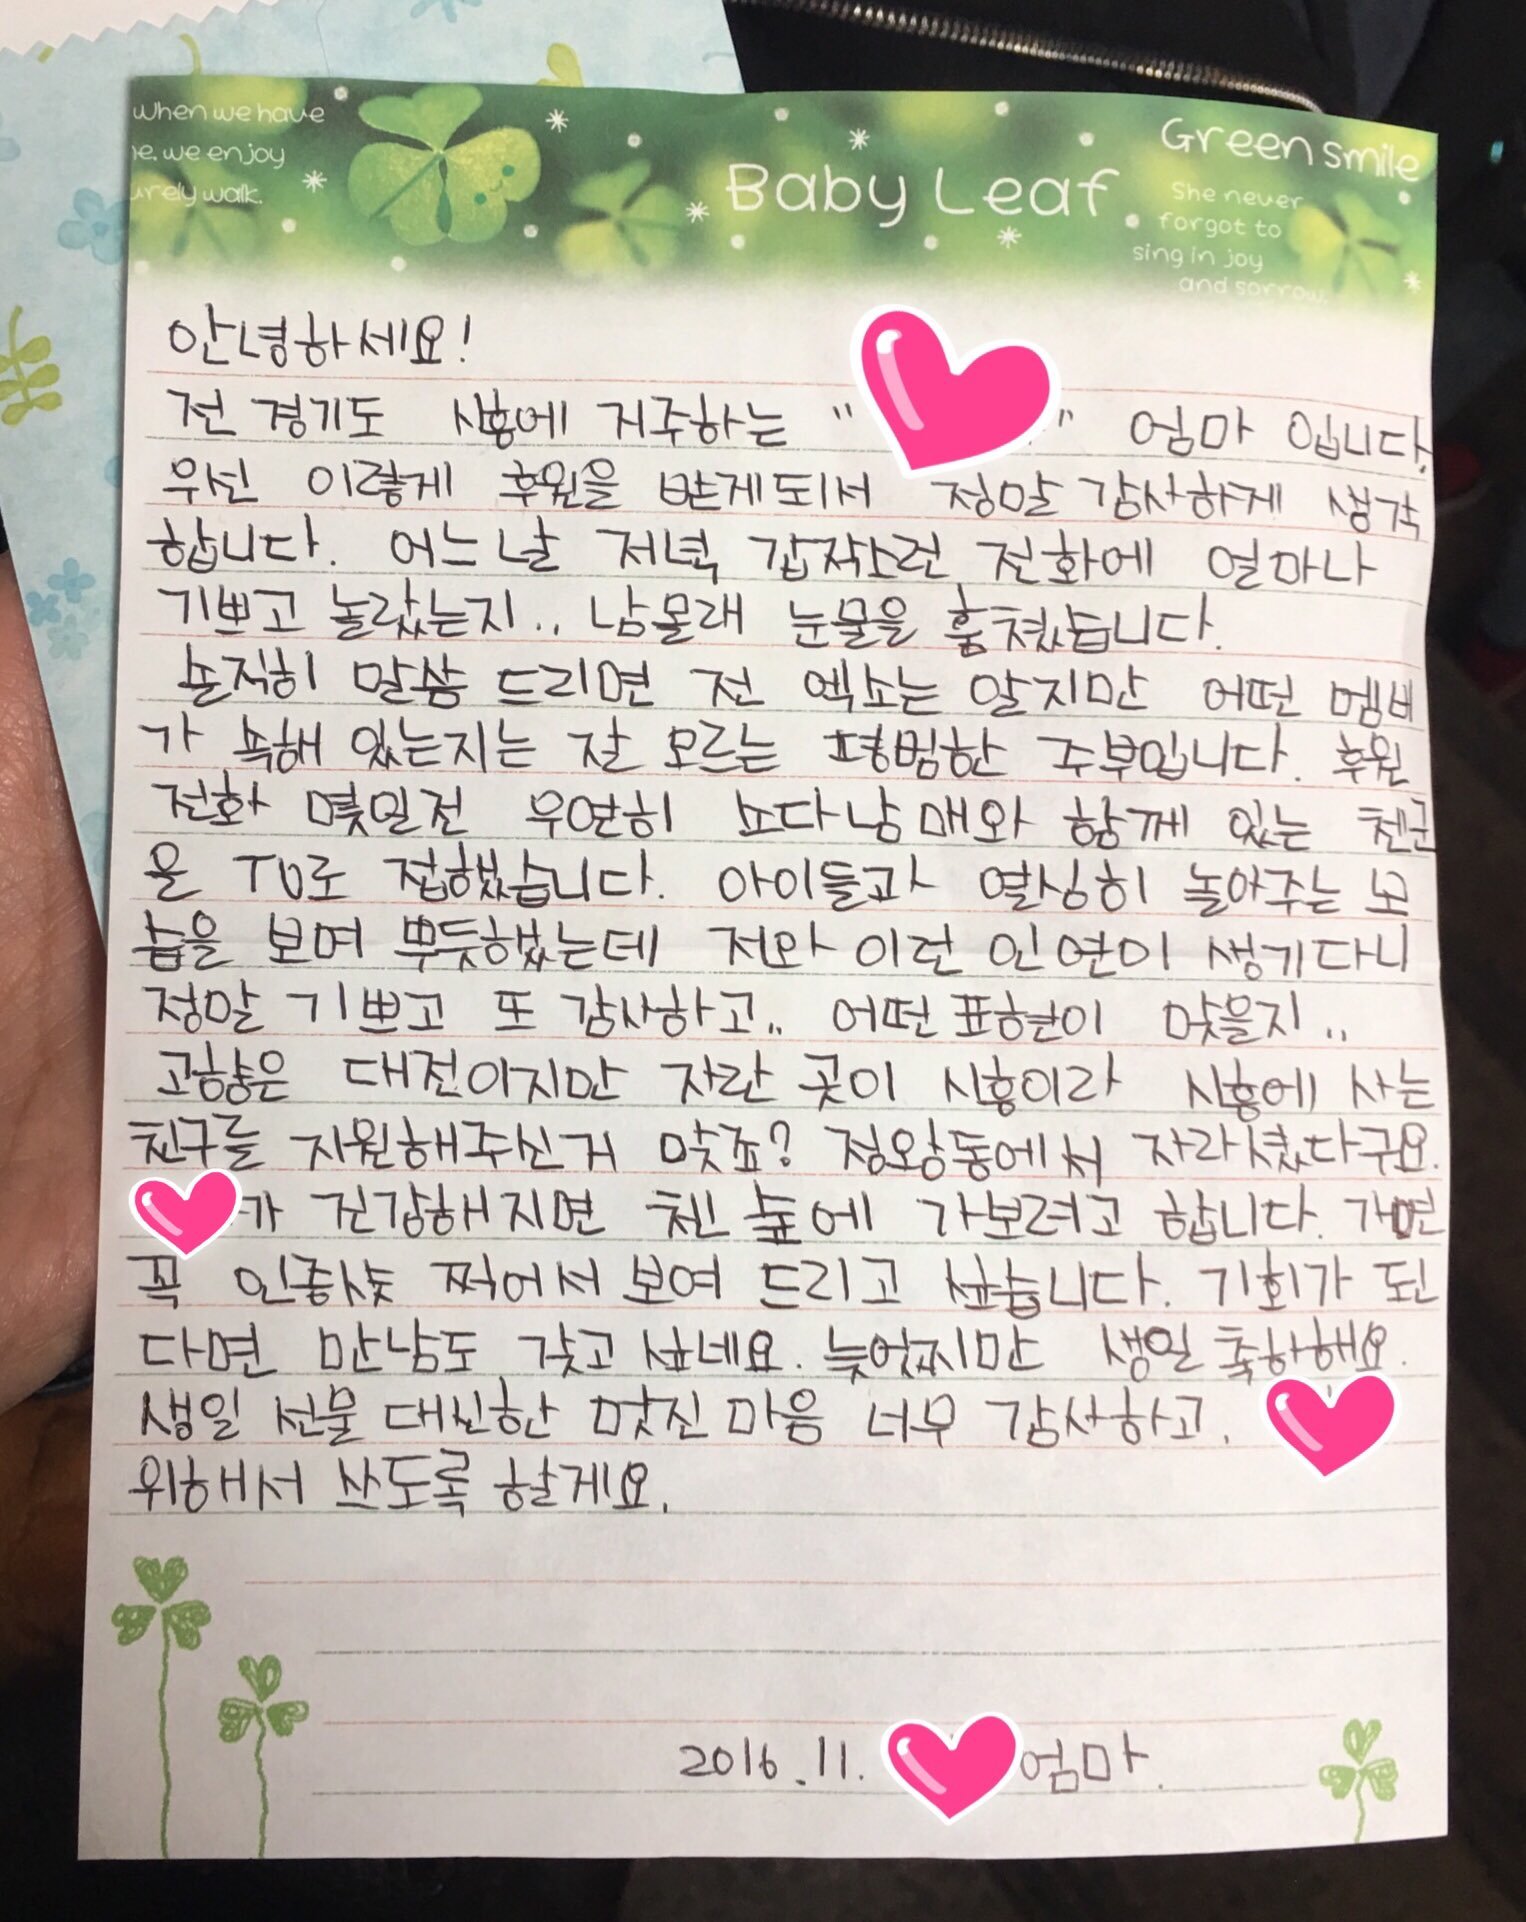 when we have
e, we enjoy
urely walk.
Baby Leaf
Green smile
She never
forgot to
sing in joy
and sorrow.
안녕하세요!
전 경기도 시흥에 거주하는 " " 엄마 입니다.
우선 이렇게 후원을 받게되서 정말 감사하게 생각
합니다. 어느날 저녁 갑작스런 전화에 얼마나
기쁘고 놀랐는지.. 남몰래 눈물을 훔쳤습니다.
솔직히 말씀 드리면 전 엑소는 알지만 어떤 멤버
가 속해 있는지는 잘 모르는 평범한 주부입니다. 후원
전화 몇일전 우연히 쇼다남매와 함께 있는 첸군
을 TV로 접했습니다. 아이들과 열심히 놀아주는 모
습을 보며 뿌듯했는데 저와 이런 인연이 생기다니
정말 기쁘고 또 감사하고.. 어떤 표현이 맞을지..
고향은 대전이지만 자란 곳이 시흥이라 시흥에 사는
친구를 지원해주신거 맞죠? 정왕동에서 자라셨다구요.
가 건강해지면 첸 숲에 가보려고 합니다. 가면
꼭 인증샷 찍어서 보여 드리고 싶습니다. 기회가 된
다면 만남도 갖고 싶네요. 늦었지만 생일 축하해요.
생일 선물 대신한 멋진 마음 너무 감사하고.
위해서 쓰도록 할게요.
2016.11. 엄마.